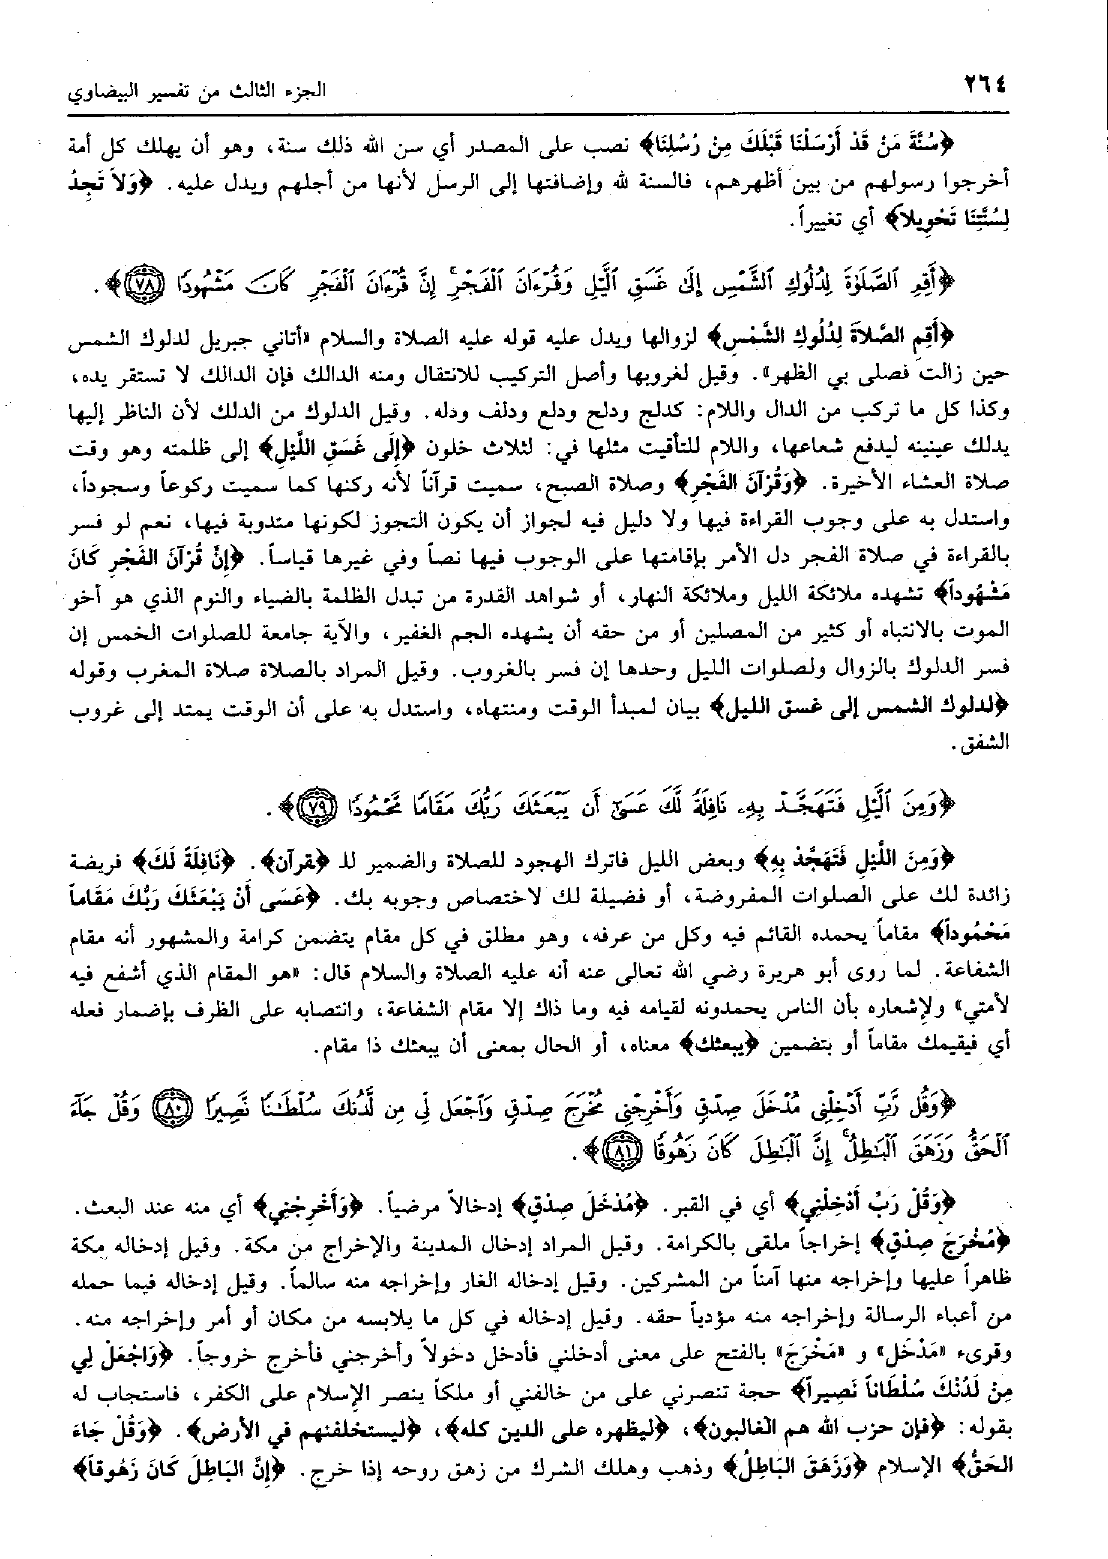 ٢٦٤
الجزء الثالث من تفسير البيضاوي
﴿سُنَّةَ مَنْ قَدْ أَرْسَلْنَا قَبْلَكَ مِنْ رُسُلِنَا﴾ نصب على المصدر أي سن الله ذلك سنة، وهو أن يهلك كل أمة
أخرجوا رسولهم من بين أظهرهم، فالسنة لله وإضافتها إلى الرسل لأنها من أجلهم ويدل عليه. ﴿وَلاَ تَجِدُ
لِسُنَّتِنَا تَحْوِيلاً﴾ أي تغييراً.
﴿أَقِمِ ٱلصَّلَوٰةَ لِدُلُوكِ ٱلشَّمْسِ إِلَىٰ غَسَقِ ٱلَّيْلِ وَقُرْءَانَ ٱلْفَجْرِ ۖ إِنَّ قُرْءَانَ ٱلْفَجْرِ كَانَ مَشْهُودًا ﴿٧٨﴾﴾.
﴿أَقِمِ الصَّلاَةَ لِدُلُوكِ الشَّمْسِ﴾ لزوالها ويدل عليه قوله عليه الصلاة والسلام «أتاني جبريل لدلوك الشمس
حين زالت فصلى بي الظهر». وقيل لغروبها وأصل التركيب للانتقال ومنه الدالك فإن الدالك لا تستقر يده،
وكذا كل ما تركب من الدال واللام: كدلج ودلح ودلع ودلف ودله. وقيل الدلوك من الدلك لأن الناظر إليها
يدلك عينيه ليدفع شعاعها، واللام للتأقيت مثلها في: لثلاث خلون ﴿إِلَى غَسَقِ اللَّيْلِ﴾ إلى ظلمته وهو وقت
صلاة العشاء الأخيرة. ﴿وَقُرْآنَ الفَجْرِ﴾ وصلاة الصبح، سميت قرآناً لأنه ركنها كما سميت ركوعاً وسجوداً،
واستدل به على وجوب القراءة فيها ولا دليل فيه لجواز أن يكون التجوز لكونها مندوبة فيها، نعم لو فسر
بالقراءة في صلاة الفجر دل الأمر بإقامتها على الوجوب فيها نصاً وفي غيرها قياساً. ﴿إِنَّ قُرْآنَ الفَجْرِ كَانَ
مَشْهُوداً﴾ تشهده ملائكة الليل وملائكة النهار، أو شواهد القدرة من تبدل الظلمة بالضياء والنوم الذي هو أخو
الموت بالانتباه أو كثير من المصلين أو من حقه أن يشهده الجم الغفير، والآية جامعة للصلوات الخمس إن
فسر الدلوك بالزوال ولصلوات الليل وحدها إن فسر بالغروب. وقيل المراد بالصلاة صلاة المغرب وقوله
﴿لدلوك الشمس إلى غسق الليل﴾ بيان لمبدأ الوقت ومنتهاه، واستدل به على أن الوقت يمتد إلى غروب
الشفق.
﴿وَمِنَ ٱلَّيْلِ فَتَهَجَّدْ بِهِۦ نَافِلَةً لَّكَ عَسَىٰٓ أَن يَبْعَثَكَ رَبُّكَ مَقَامًا مَّحْمُودًا ﴿٧٩﴾﴾.
﴿وَمِنَ اللَّيْلِ فَتَهَجَّدْ بِهِ﴾ وبعض الليل فاترك الهجود للصلاة والضمير للـ ﴿قرآن﴾. ﴿نَافِلَةً لَكَ﴾ فريضة
زائدة لك على الصلوات المفروضة، أو فضيلة لك لاختصاص وجوبه بك. ﴿عَسَى أَنْ يَبْعَثَكَ رَبُّكَ مَقَاماً
مَحْمُوداً﴾ مقاماً يحمده القائم فيه وكل من عرفه، وهو مطلق في كل مقام يتضمن كرامة والمشهور أنه مقام
الشفاعة. لما روى أبو هريرة رضي الله تعالى عنه أنه عليه الصلاة والسلام قال: «هو المقام الذي أشفع فيه
لأمتي» ولإشعاره بأن الناس يحمدونه لقيامه فيه وما ذاك إلا مقام الشفاعة، وانتصابه على الظرف بإضمار فعله
أي فيقيمك مقاماً أو بتضمين ﴿يبعثك﴾ معناه، أو الحال بمعنى أن يبعثك ذا مقام.
﴿وَقُل رَّبِّ أَدْخِلْنِى مُدْخَلَ صِدْقٍ وَأَخْرِجْنِى مُخْرَجَ صِدْقٍ وَٱجْعَل لِّى مِن لَّدُنكَ سُلْطَـٰنًا نَّصِيرًا ﴿٨٠﴾ وَقُلْ جَآءَ
ٱلْحَقُّ وَزَهَقَ ٱلْبَـٰطِلُ ۚ إِنَّ ٱلْبَـٰطِلَ كَانَ زَهُوقًا ﴿٨١﴾﴾.
﴿وَقُلْ رَبِّ أَدْخِلْنِي﴾ أي في القبر. ﴿مُدْخَلَ صِدْقٍ﴾ إدخالاً مرضياً. ﴿وَأَخْرِجْنِي﴾ أي منه عند البعث.
﴿مُخْرَجَ صِدْقٍ﴾ إخراجاً ملقى بالكرامة. وقيل المراد إدخال المدينة والإخراج من مكة. وقيل إدخاله مكة
ظاهراً عليها وإخراجه منها آمناً من المشركين. وقيل إدخاله الغار وإخراجه منه سالماً. وقيل إدخاله فيما حمله
من أعباء الرسالة وإخراجه منه مؤدياً حقه. وقيل إدخاله في كل ما يلابسه من مكان أو أمر وإخراجه منه.
وقرىء «مَدْخَل» و «مَخْرَجَ» بالفتح على معنى أدخلني فأدخل دخولاً وأخرجني فأخرج خروجاً. ﴿وَاجْعَلْ لِي
مِنْ لَدُنْكَ سُلْطَاناً نَصِيراً﴾ حجة تنصرني على من خالفني أو ملكاً ينصر الإسلام على الكفر، فاستجاب له
بقوله: ﴿فإن حزب الله هم الغالبون﴾، ﴿ليظهره على الدين كله﴾، ﴿ليستخلفنهم في الأرض﴾. ﴿وَقُلْ جَاءَ
الحَقُّ﴾ الإسلام ﴿وَزَهَقَ البَاطِلُ﴾ وذهب وهلك الشرك من زهق روحه إذا خرج. ﴿إِنَّ البَاطِلَ كَانَ زَهُوقاً﴾